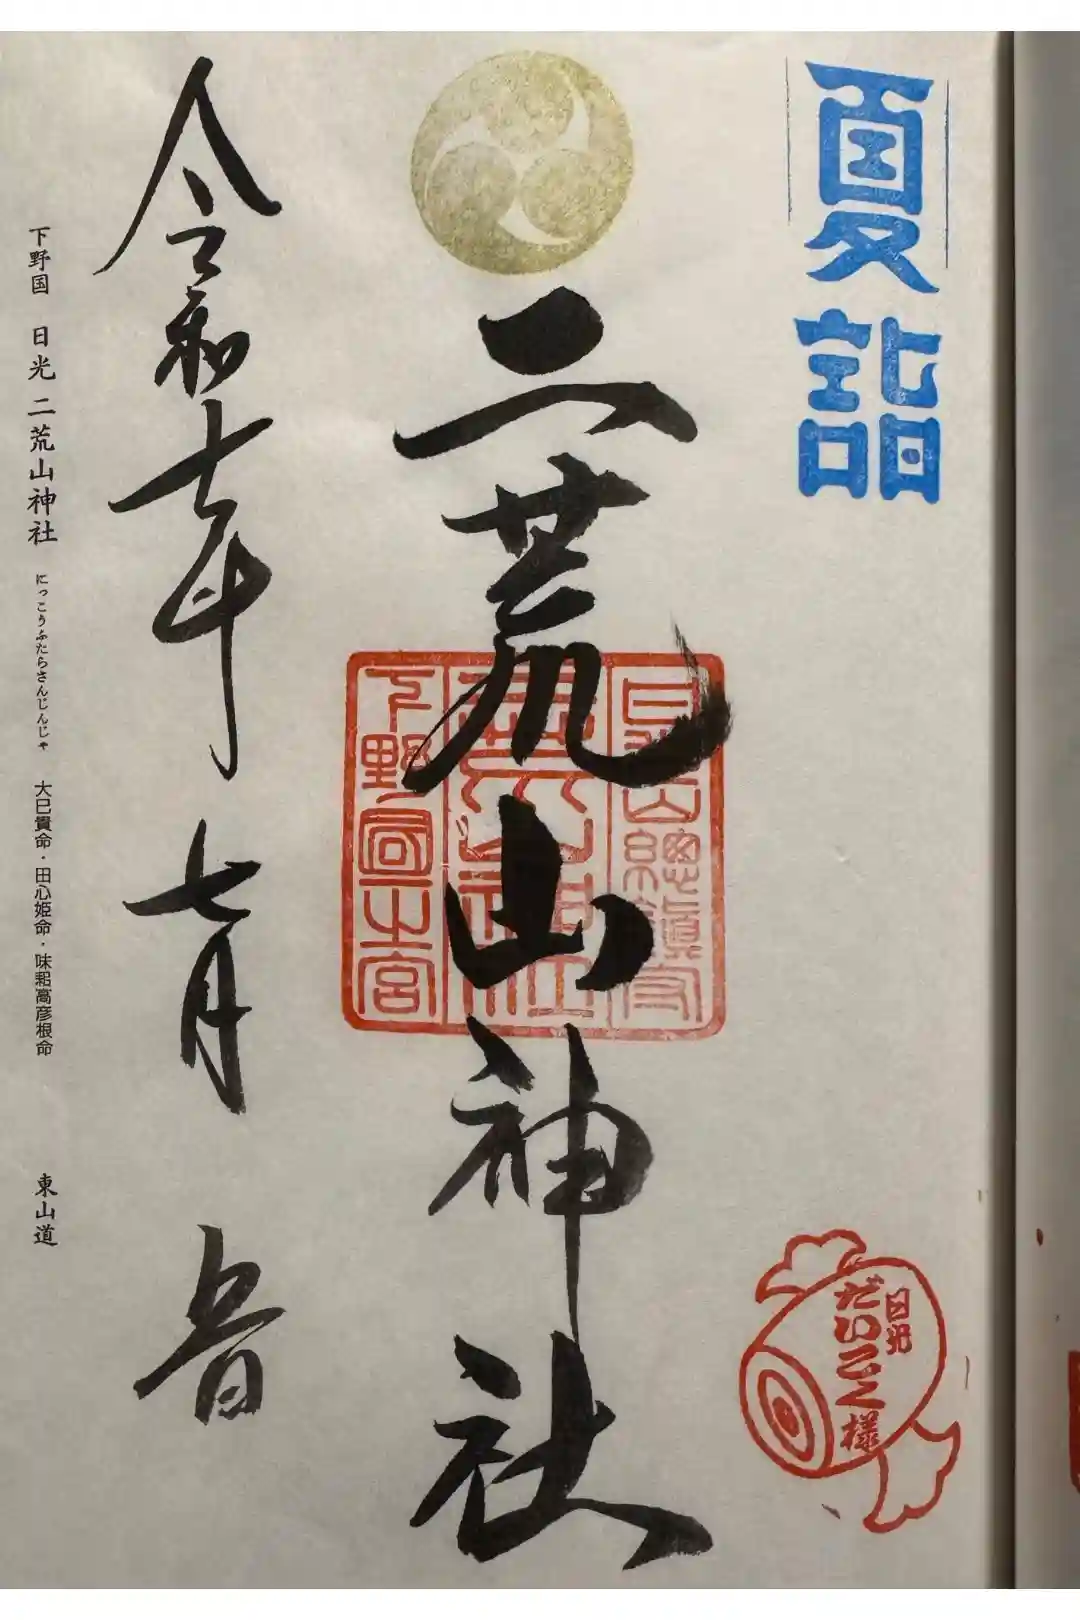 夏詣
二荒山神社
日光山總領守
二荒山神社
下野國一之宮
日光
だいこく様
令和七年 七月 吉日
下野国 日光二荒山神社 にっこうふたらさんじんじゃ 大己貴命・田心姫命・味耜高彦根命 東山道